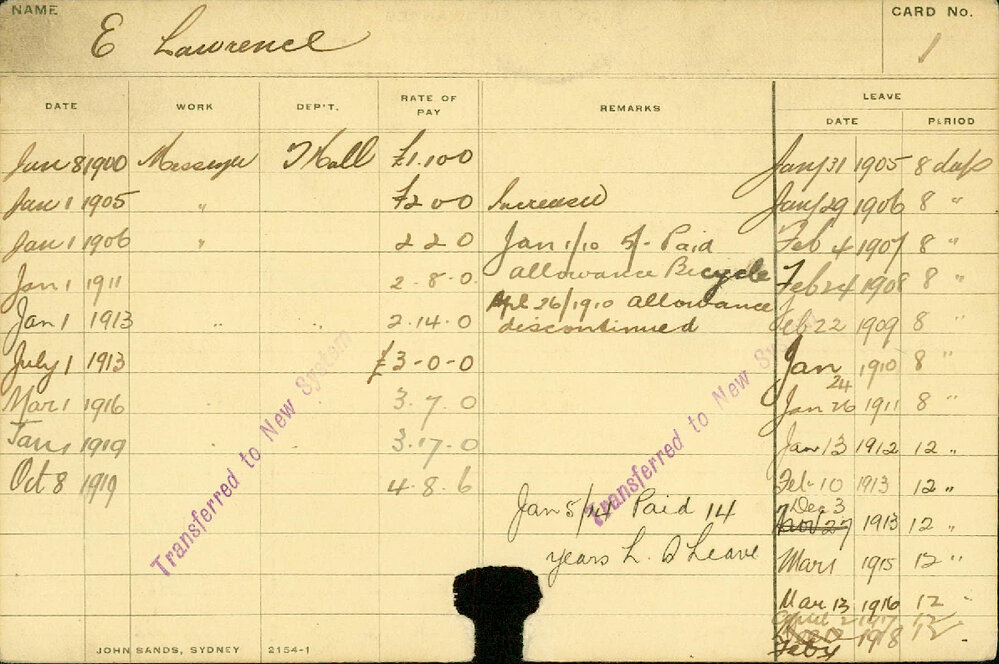 NAME
CARD No.
E Lawrence
1
DATE WORK DEP'T. RATE OF PAY REMARKS LEAVE
DATE PERIOD
Jan 8 1900 Messenger T Hall £1.10 0
Jan 1 1905 " £2 0 0 Increased
Jan 1 1906 " 2 2 0 Jan 1/10 5/- Paid
allowance Bicycle
Jan 1 1911 2. 8. 0
Apl 26/1910 allowance
discontinued
Jan 1 1913 " " 2. 14. 0
July 1 1913 £3-0-0
Mar 1 1916 3. 7. 0
Jan 1 1919 3. 17. 0
Oct 8 1919 4. 8. 6
Jan 5/14 Paid 14
years L. S Leave
Jan 31 1905 8 days
Jan 29 1906 8 "
Feb 4 1907 8 "
Feb 24 1908 8 "
Feb 22 1909 8 "
Jan 24 1910 8 "
Jan 26 1911 8 "
Jan 13 1912 12 "
Feb 10 1913 12 "
Dec 3
Nov 27 1913 12 "
Mar 1 1915 12 "
Mar 13 1916 12 "
April 2 1917 12
Feby 1918 12
Transferred to New System
Transferred to New Sy
JOHN SANDS, SYDNEY 2154-1